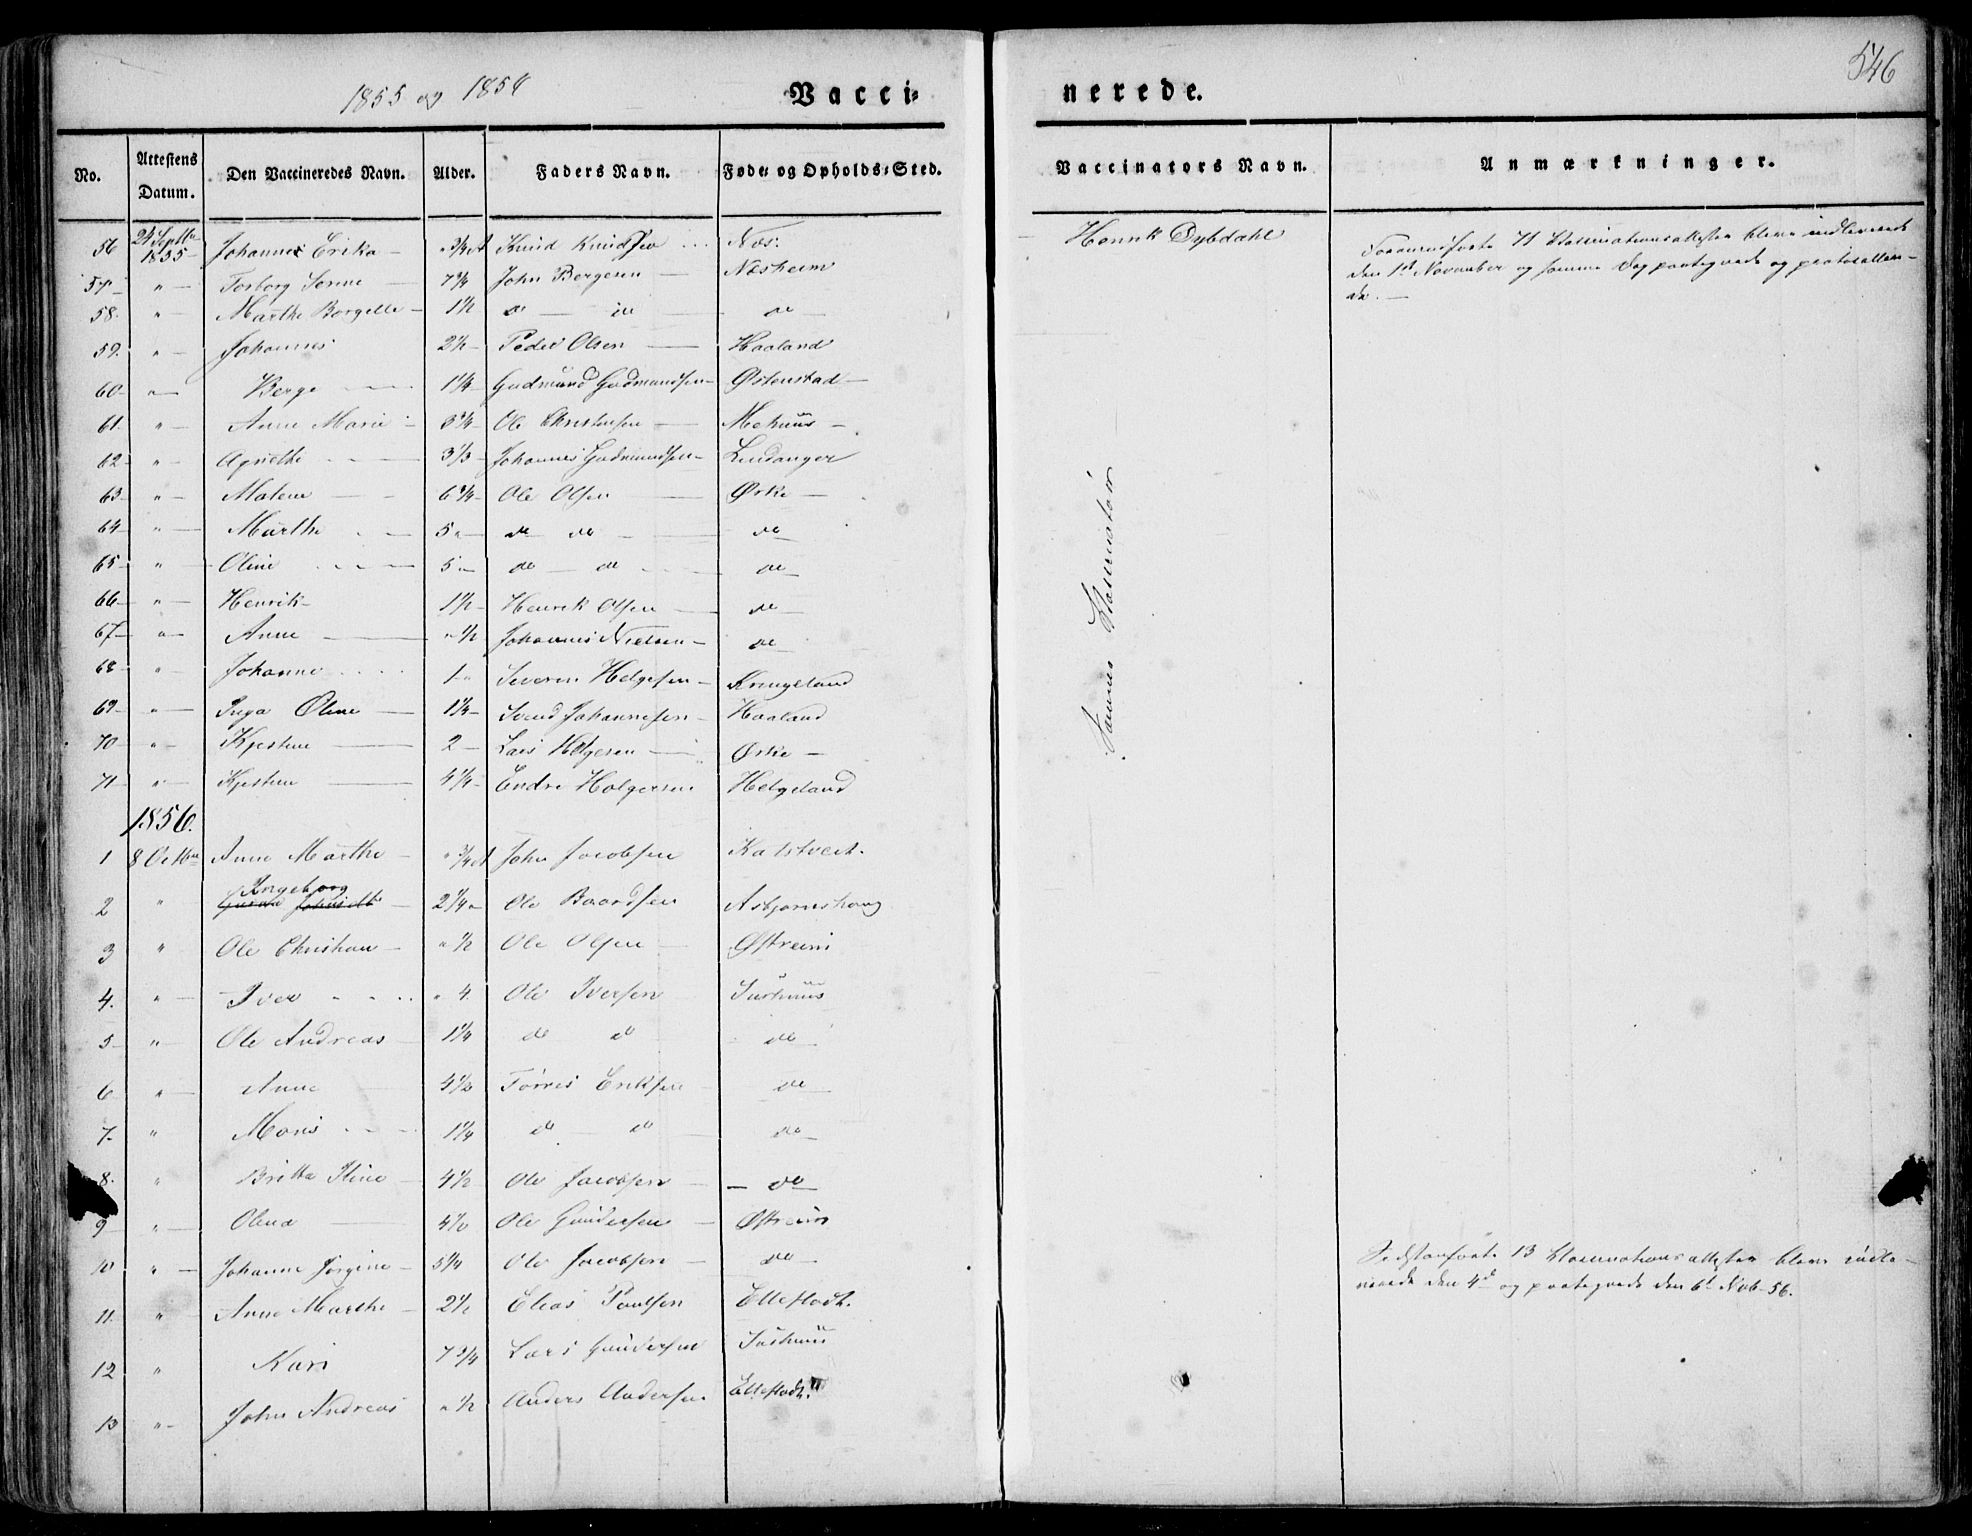 546
1855 og 1856
Vacci-
nerede.
No.
Attestens Datum.
Den Vaccineredes Navn.
Alder.
Faders Navn.
Føde- og Opholds-Sted.
Vaccinators Navn.
Anmærkninger.
56 24 Septbr 1855 Johanne Erika " 3/4 A Knud Knudsen Næs. Henrik Dybdahl
57 " Torborg Serine 7 3/4 John Bergesen Næsheim
58 " Marthe Borgelle 1 1/2 do do do
59 " Johannes 2 1/2 Peder Olsen Haaland
60 " Berge 1 1/4 Gudmund Gudmundsen Østenstad
61 " Anne Marie Ole Christensen Mehuus
62 " Agnethe 3 1/3 Johannes Gudmundsen Lindanger
63 " Malene 6 3/4 Ole Olsen Ørke
64 " Marthe 5 " do do do
65 " Oline 5 " do do do
66 " Henrik 1 1/2 Henrik Olsen do
67 " Anne " 1/2 Johannes Nielsen do
68 " Johanne 1 " Severin Helgesen Kringeland
69 " Inga Oline 1 1/4 Svend Johannesen Haaland
70 " Kjestine 2 Lars Helgesen Ørke
71 " Kjestine 4 1/4 Endre Holgersen Helgeland
Samme Vaccinatør
Forananførte 71 Vaccinationsattester bleve indleverede
den 1st November og samme Dag paategnede og protocollere-
de.
1856.
1 8 Octbr Anne Marthe " 3/4 A John Jacobsen Katstveit.
Ingeborg
2 " 2 1/4 Ole Baardsen Asbjørnshoug
3 " Ole Christian " 1/2 Ole Olsen Østreim
4. " Iver " 4. Ole Iversen
5 " Ole Andreas 1 1/4 do do do
6 " Anne 4 1/2 Tørres Eriksen do
7 " 1 1/4 do do do
8. " Britta Iline 4 1/2 Ole Jacobsen do
9 " Olena 4 1/2 Ole Gundersen Østreim
10 " Johanne Jørgine 5 1/4 Ole Jacobsen do
11. " Anne Marthe 2 1/2 Elias Paulsen Ellefladt.
12 " Kari 7 3/4 Lars Gundersen
13 " John Andreas " 1/2 Anders Andersen Ellefladt.
Sidstanførte 13 Vaccinationsattester bleve indle-
verede den 4d og paategnede den 6t Nvb. 56.